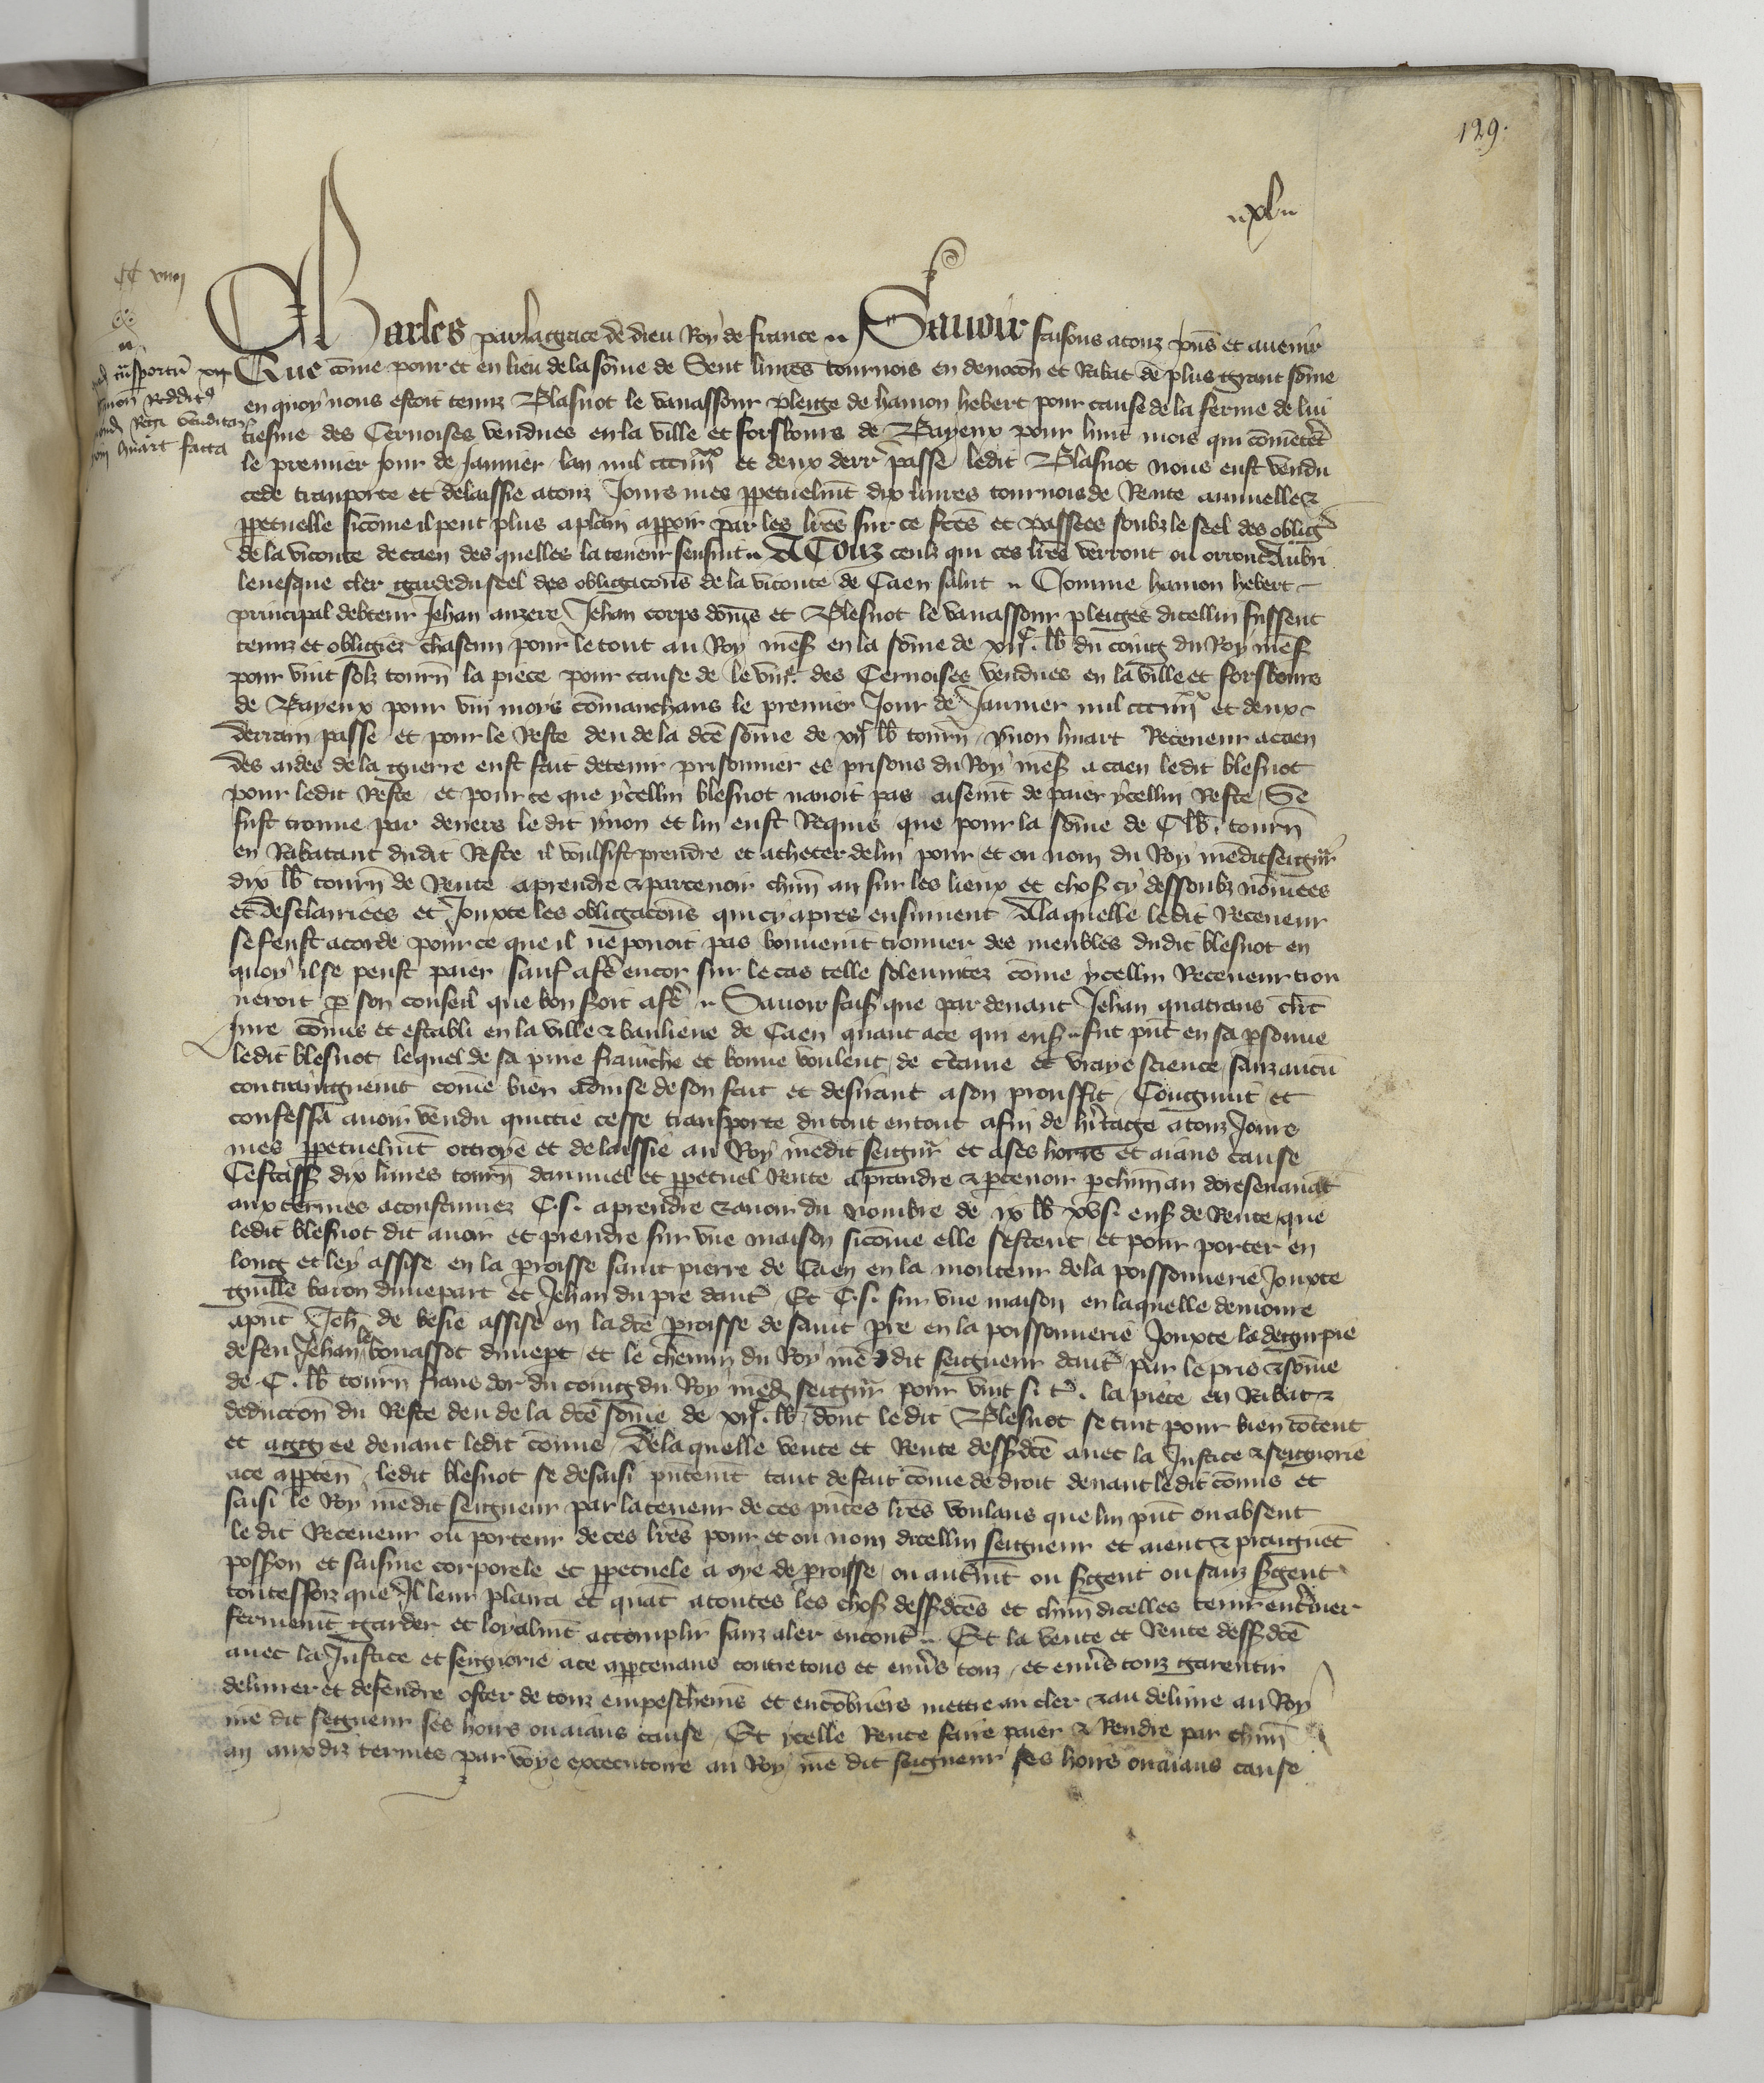 129.
xl
CC viiii
Charles par la grace de dieu Roy de france Savoir faisons a touz pns et avenir
Que cōme pour et en lieu de la sōme de Cent livres tournois en deducōn et Rabat de plus grant sōme
en quoy nous estoit tenuz Blasnot le vavassour pleige de hamon hebert pour cause de la ferme de lui
tiesme des Cervoises vendues en la ville et forsbours de Bayeux pour huit mois qui cōmēcēt
le premier Jour de Janvier lan mil ccc iiiixx et deux derr passe ledit Blasnot nous eust vendu
cede tranporte et delaissie a touz Jours mes ppetuelmt dix livres tournois de Rente annuelle &
ppetuelle sicōme il peut plus a plain appoir par les lres sur ce fctes et passees soubz le seel des oblig
de la viconte de caen des quelles la teneur sensuit A Touz ceulz qui ces lres verront ou orront Aubri
levesque cler garde du seel des obligacons de la viconte de Caen salut Comme hamon hebert
principal debteur Jehan auzere Jehan corps dōme et Blesnot le vavassour pleiges dicellui fussent
tenuz et obligiez chascun pour le tout au Roy mess en la sōme de xiic. lb du coing du Roy mess
pour vint solz tourn la piece pour cause de le viiie. des Cervoises vendues en la ville et forsbours
de Bayeux pour viii mois cōmanchans le premier Jour de Janvier mil ccc iiiixx et deux
derrain passe et pour le Reste deu de la dce sōme de xiic lb tourn ymon huart Receveur a caen
des aides de la guerre eust fait detenir prisonnier es prisons du Roy mess a caen ledit blesnot
pour ledit Reste et pour ce que ycellui blesnot navoit pas aisemt de paier ycellui Reste Se
fust trouve par devers le dit ymon et lui eust Requis que pour la sōme de C lb. tourn
en Rabatant dudit Reste il voulsist prendre et acheter de lui pour et ou nom du Roy mēdit seigur
dix lb tourn de Rente a prendre & parcevoir chūn an sur les lieux et chos cy dessoubz nōmees
et desclairiees et Jouxte les obligacons qui cy apres ensuivent A laquelle ledit Receveur
se feust acorde pour ce que il ne povoit pas bonnemt trouver des meubles dudit blesnot en
quoy il se peust paier sauf a fe encor sur le cas telle solennitez cōme ycellui Receveur trou
veroit p son conseil que bon soit a fe Savoir fais que par devant Jehan quatrans clrc
Jure cōmis et establi en la ville & banlieue de Caen quant a ce qui ens fut pnt en sa psonne
ledit blesnot lequel de sa pure franche et bonne voulent de ctaine et vraye science sanz aucū
contraingnemt cōme bien advise de son fait et desirant a son prouffit Congnut et
confessa avoir vendu quictie cesse transporte du tout en tout afin de hitage a touz Jours
mes ppetuelmt octroye et delaissie au Roy mēdit seigur et a ses hoirs et aians cause
Cestass dix livres tourn dannuel et ppetuel Rente a prandre & pcevoir p chūn an doresenavāt
aux termes acoustumez C. s. a prendre & avoir du nombre de ix lb xvs. ens de Rente que
ledit blesnot dit avoir et prendre sur une maison sicōme elle sestent et pour porter en
long et ley assise en la proisse saint pierre de Caen en la monteur de la poissonnerie Jouxte
guille baron dune part et Jehan du pre daut Et C. s. sur une maison en laquelle demoure
apnt Jeh de besie assise en la dce proisse de saint pre en la poissonnerie Jouxte la deguerpie
de feu Jehan le bouassot dune pt et le chemin du Roy mē dit seigneur daut par le pris & sōme
de C. lb tourn frans dor du coing du Roy mēd seigur pour vint s. t. la piece en Rabat &
deduccon du Reste deu de la dce sōme de xiic. lb dont le dit Blesnot se tint pour bien cōtent
et aggree devant ledit cōmis De laquelle vente et Rente dessdce avec la Justice & seigneurie
a ce apptēn ledit blesnot se desaisi pntemt tant de fait cōme de droit devant le dit cōmis et
saisi le Roy mēdit seigneur par la teneur de ces pntes lres voulans que lui pnt ou absent
le dit Receveur ou porteur de ces lres pour et ou nom dicellui seigneur et aient & praignēt
posson et saisine corporele et ppetuele a oye de proisse ou autmt ou sgent ou sanz sgent
toutesfoiz que Il leur plaira et quāt a toutes les chos dessdces et chūn dicelles tenir entiner
fermemt garder et loyalmt accomplir sanz aler encont Et la vente et Rente dessdce
avec la Justice et seigneurie a ce apptenans contre tous et envs touz et envs touz garentir
delivrer et defendre oster de touz empeschems et encōbriers mettre au cler & au delivre au Roy
mē dit seigneur ses hoirs ou aians cause Et ycelle Rente faire paier & Rendre par chūn
an aux diz termes par voye executoire au Roy mē dit seigneur ses hoirs ou aians cause